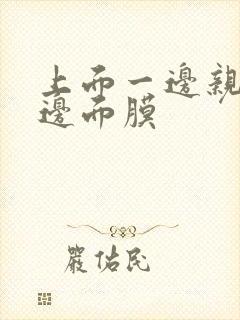 上而一邊親
邊而膜
嚴佑民